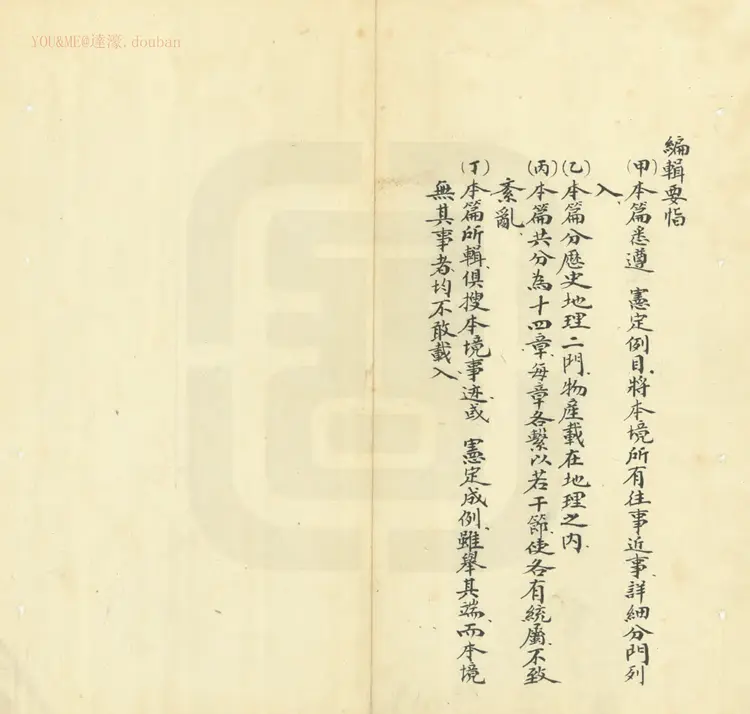 YOU&ME@達濠.douban
編輯要恉
(甲)本篇悉遵　憲定例目、將本境所有往事近事、詳細分門列
入、
(乙)本篇分歷史地理二門、物產載在地理之內、
(丙)本篇共分為十四章、每章各繫以若干節、使各有統屬、不致
紊亂、
(丁)本篇所輯、俱搜本境事迹、或　憲定成例、雖舉其端、而本境
無其事者、均不敢載入、